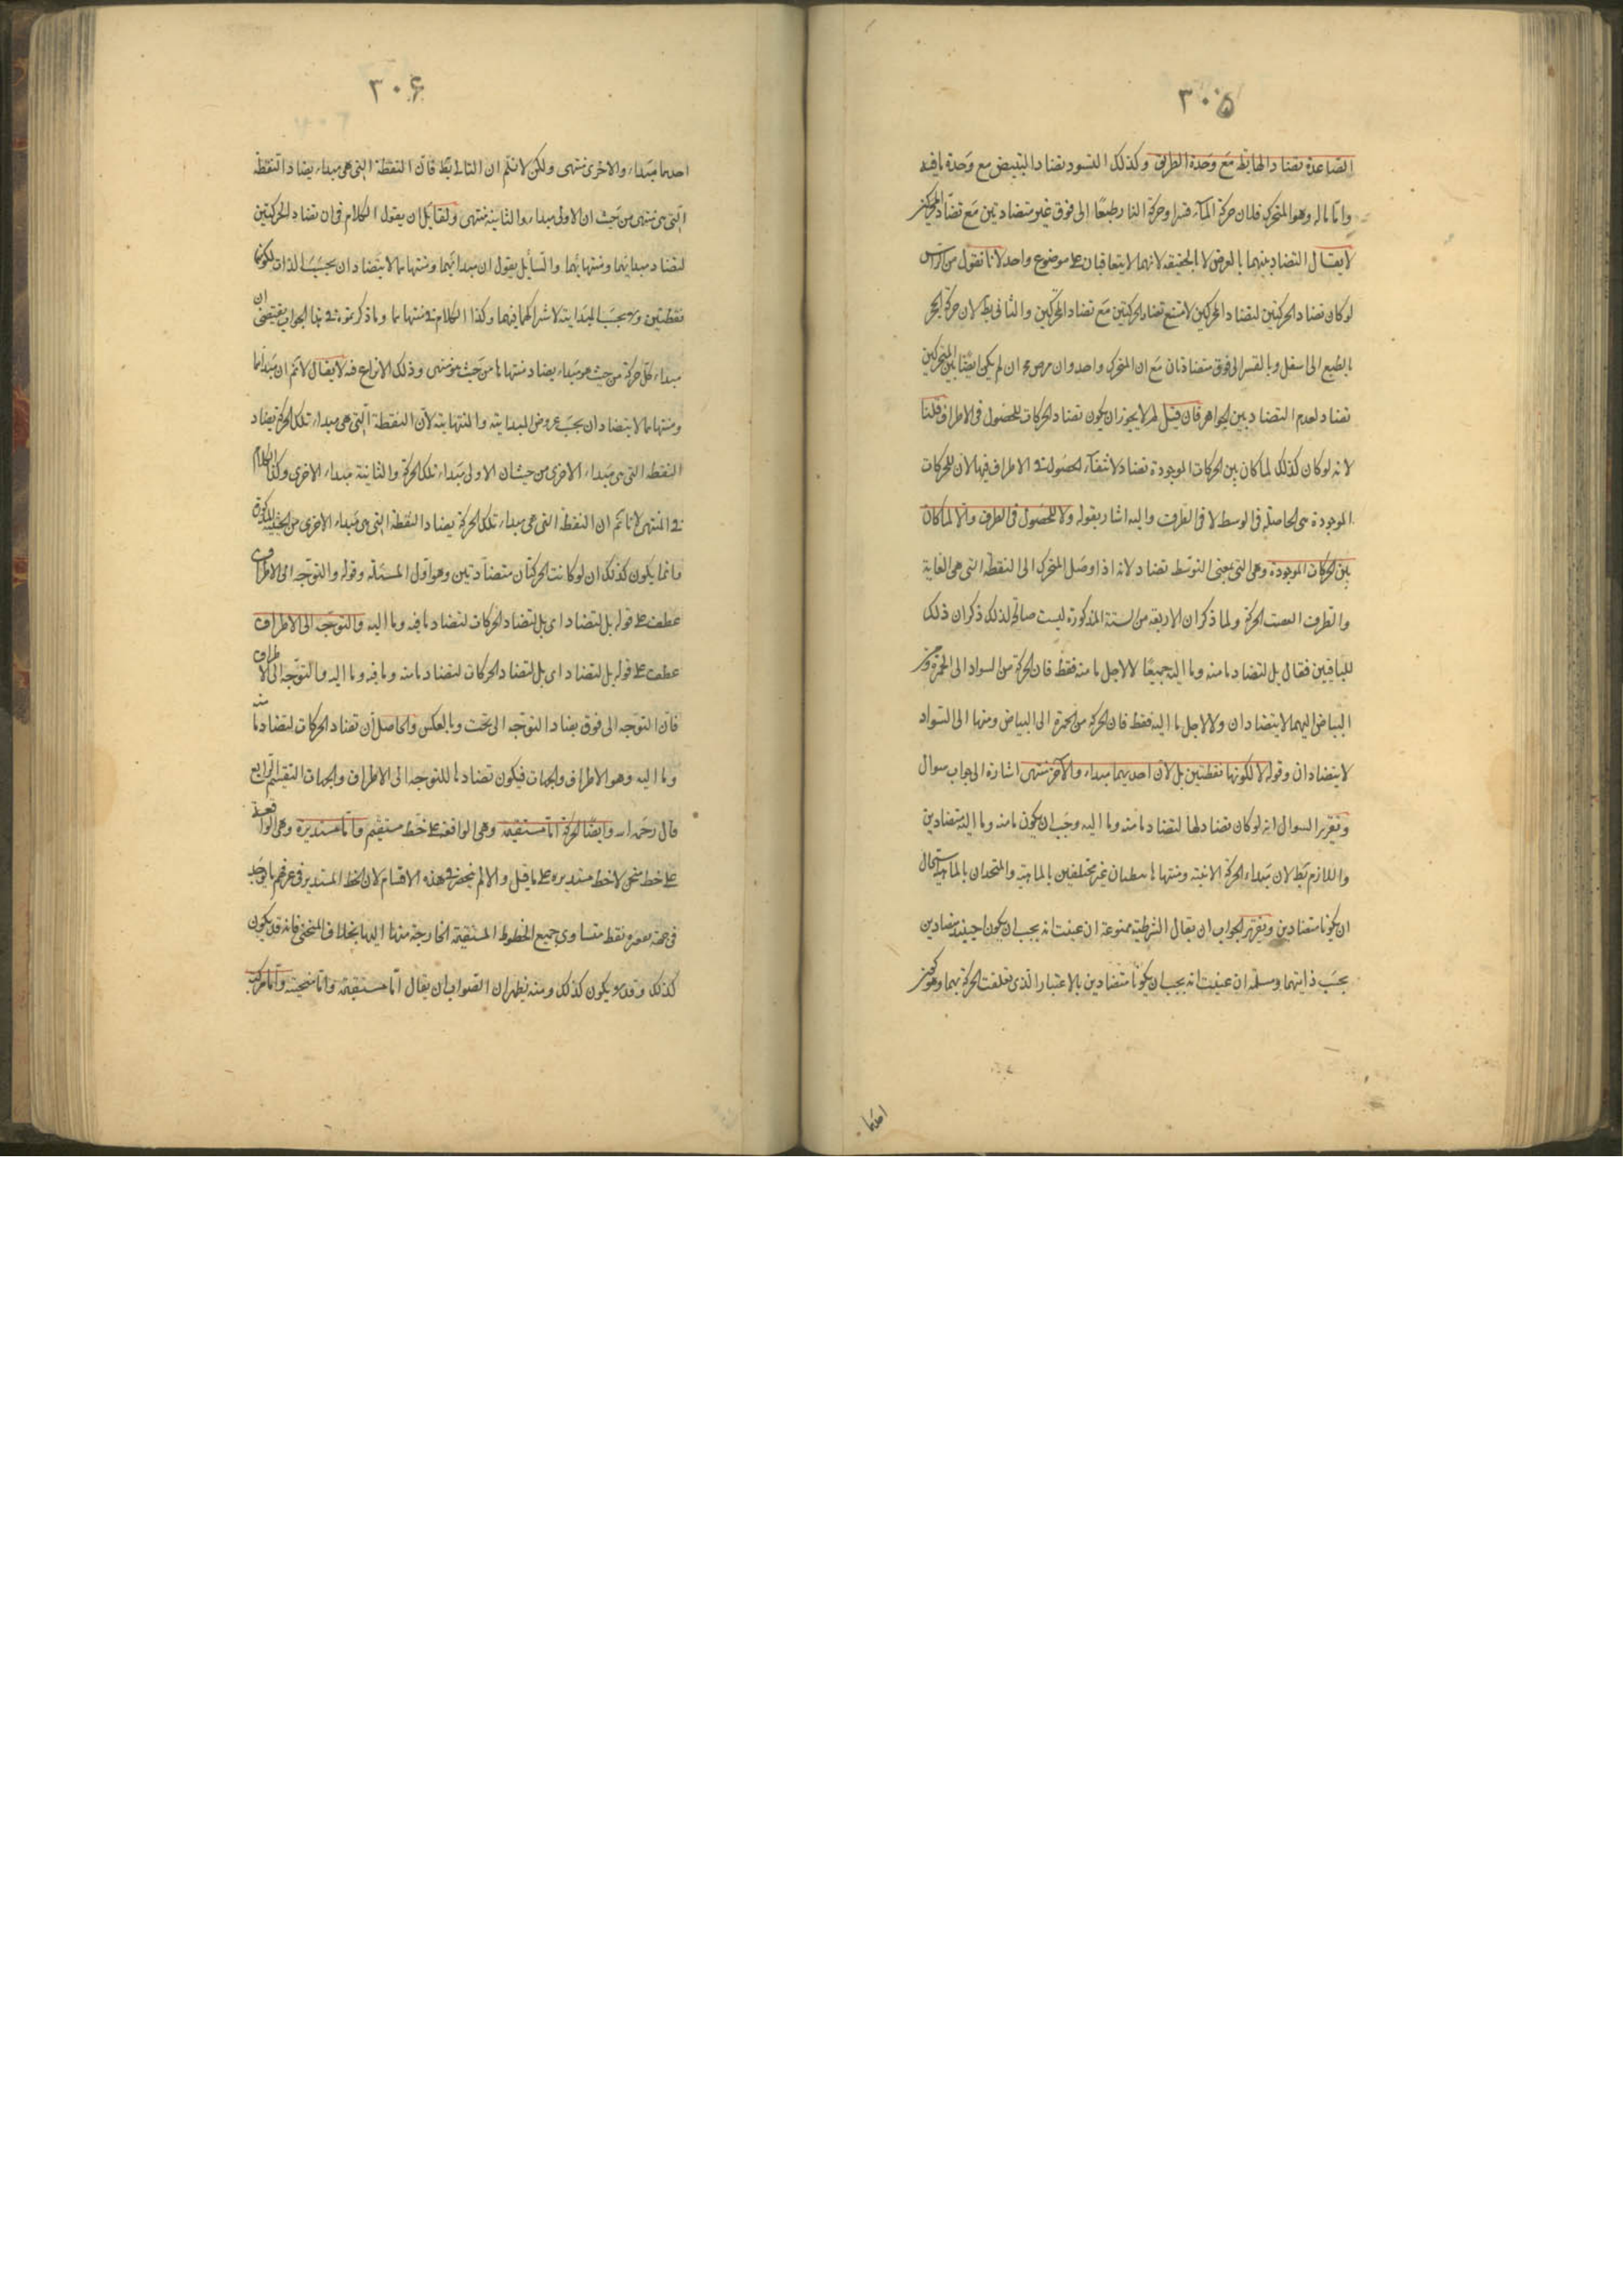 ٣٠٥
الصاعدة تضاد الهابطة مع وحدة الطريق وكذلك التسود تضاد التبيض مع وحدة ما فيه
واما ما له وهو المتحرك فلان حركة المآء قسرا وحركة النار طبعًا الى فوق غير متضادتين مع تضاد المتحركين
لا يقال التضاد بينهما بالعرض لا الحقيقه لانهما لا يتعاقبان على موضوع واحد لانا نقول من الراس
لو كان تضاد الحركتين لتضاد المحركين لامتنع تضاد الحركتين مع تضاد المحركين والثانى بط لان حركة الحجر
بالطبع الى اسفل وبالقسر الى فوق متضادتان مع ان المتحرك واحد وان لم يكن ايضا بين المتحركين
تضاد لعدم التضاد بين الجواهر فان قيل لم لا يجوز ان يكون تضاد الحركات للحصول فى الاطراف قلنا
لانه لو كان كذلك لما كان بين الحركات الموجودة تضاد لانتفآء الحصول فى الاطراف فيها لان للحركات
الموجودة هى الحاصلة فى الوسط لا فى الطرف واليه اشار بقوله ولا للحصول فى الطرف والا لما كان
بين الحركات الموجودة وهى التى بمعنى التوسط تضاد لانه اذا وصل المتحرك الى النقطة التى هى الغاية
والطرف الحركة ولما ذكر ان الاربعة من الستة المذكورة ليست صالحة لذلك ذكر ان ذلك
للباقيين فقال بل لتضاد ما منه وما اليه جميعًا لا لاجل ما منه فقط فان الحركة من السواد الى الحمرة ومن
البياض اليهما لا يتضادان ولا لاجل ما اليه فقط فان الحركة من الحمرة الى البياض ومنها الى السواد
لا يتضادان وقوله لا لكونهما نقطتين بل لان احديهما مبداء والاخر منتهى اشارة الى جواب سوال
وتقرير السوال انه لو كان تضادها لتضاد ما منه وما اليه وجب ان يكون ما منه وما اليه متضادين
واللازم بط لان مبداء الحركة الاينية ومنتهاها غير مختلفين بالماهية والمتحدان بالماهية استحال
ان يكونا متضادين وتقرير الجواب ان يقال الشرطية ممنوعة ان عنيت انه يجب ان يكونا حينئذ متضادين
بحسب ذاتيهما ومسلمة ان عنيت انه يجب ان يكونا متضادين بالاعتبار الذى تعلقت الحركة بهما وهو كون
احدهما
٣٠۶
احدهما مبداء والاخرى منتهى ولكن لا نسلم ان التالى بط فان النقطة التى هى مبداء يضاد النقطة
التى هى منتهى من حيث ان الاولى مبداء والثانية منتهى ولقائل ان يقول الكلام فى ان تضاد الحركتين
لتضاد مبدائيهما ومنتهائيهما والسائل يقول ان مبدائيهما ومنتهاهما لا يتضادان بحسب الذات لكونهما
نقطتين ولا بحسب المبدايية لاشتراكهما فيها وكذا الكلام فى منتهاهما وما ذكرتموه فى هذا الجواب يقتضى ان
مبداء كل حركة من حيث هو مبداء يضاد منتهاها من حيث هو منتهى وذلك لا نزاع فيه لا يقال لا نم ان مبدائهما
ومنتهاهما لا يتضادان بحسب عروض المبدايية والمنتهاييه لان النقطة التى هى مبداء تلك الحركة يضاد
النقطه التى هى مبداء الاخرى من حيث ان الاولى مبداء تلك الحركة والثانية مبداء الاخرى وكذا الكلام
فى المنتهى لانا نم ان النقطة التى هى مبداء تلك الحركة يضاد النقطة التى هى مبداء الاخرى من الحيثية المذكورة
وانما يكون كذلك ان لو كانت الحركتان متضادتين وهو اول المسئلة وقوله والتوجه الى الاطراف
عطف على قوله بل لتضاد اى بل لتضاد الحركات لتضاد ما فيه وما اليه والتوجه الى الاطراف
عطف على قوله بل لتضاد اى بل لتضاد الحركات لتضاد ما منه وما فيه وما اليه والتوجه الى الاطراف
فان التوجه الى فوق يضاد التوجه الى تحت وبالعكس والحاصل ان تضاد الحركات لتضاد ما منه
وما اليه وهو الاطراف والجهات فيكون تضادها للتوجه الى الاطراف والجهات التقسيم الرابع
قال رحمه الله وايضًا الحركة اما مستقيمة وهى الواقعة على خط مستقيم واما مستديرة وهى الواقعة
على خط منحن لا خط مستديره على ما قيل والا لم ينحصر فى هذه الاقسام لان الخط المستدير فى عرفهم ما يوجد
فى جهة تقعره نقطة متساوى جميع الخطوط المستقيمة الخارجة منها اليها بخلاف المنحنى فانه قد يكون
كذلك وقد لا يكون كذلك ومنه يظهر ان الصواب ان يقال اما مستقيمة واما منحنية واما مركبة